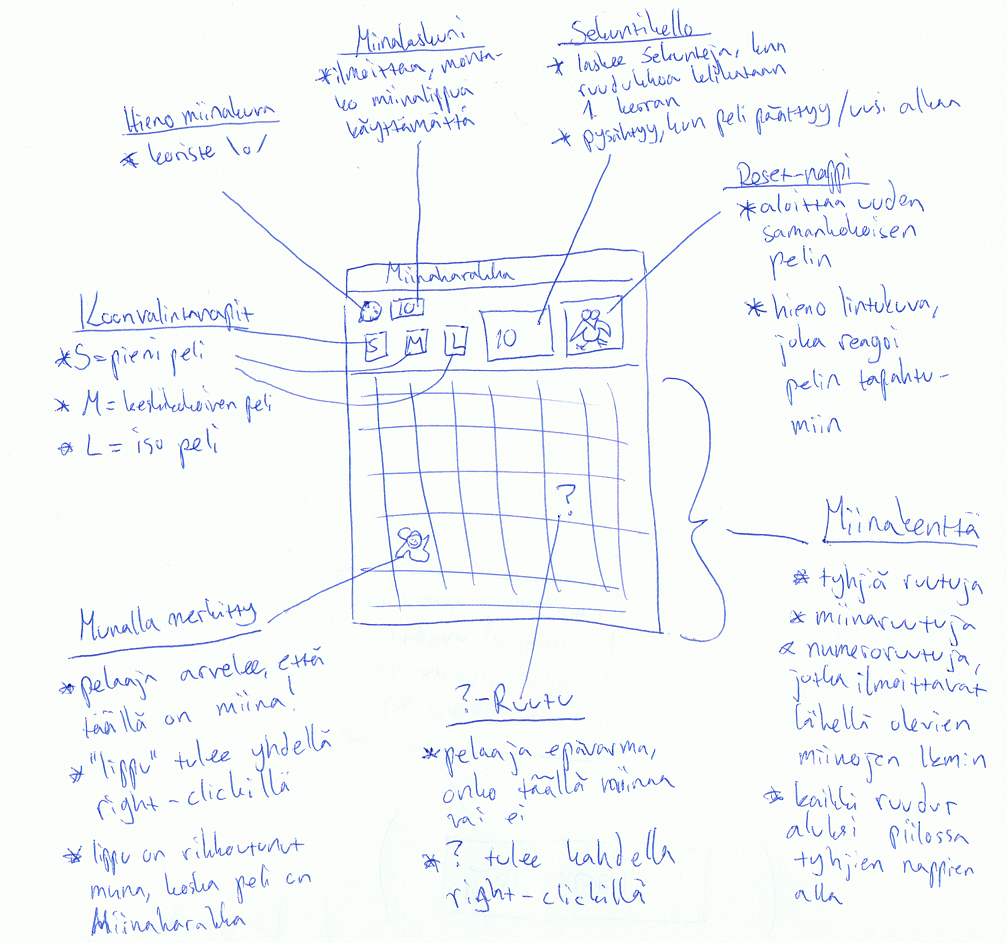 Miinalaskuri
*ilmoittaa, monta-
ko miinalippua
käyttämättä
Sekuntikello
* laskee sekunteja, kun
ruudukkoa klikataan
1. kerran
* pysähtyy, kun peli päättyy/uusi alkaa
Hieno miinakuva
* koriste \o/
Reset-nappi
*aloittaa uuden
samankokoisen
pelin
* hieno lintukuva,
joka reagoi
pelin tapahtu-
miin
Koonvalintanapit
*S=pieni peli
* M=keskikokoinen peli
* L = iso peli
Miinaharakka
10
S
M
L
10
?
Miinakenttä
* tyhjiä ruutuja
* miinaruutuja
* numeroruutuja,
jotka ilmoittavat
lähellä olevien
miinojen lkmin
* kaikki ruudut
aluksi piilossa
tyhjien nappien
alla
Munalla merkitty
*pelaaja arvelee, että
täällä on miina!
* "lippu" tulee yhdellä
right-clickillä
* lippu on rikkoutunut
muna, koska peli on
Miinaharakka
?-Ruutu
*pelaaja epävarma,
onko täällä miinaa
vai ei
* ? tulee kahdella
right-clickillä